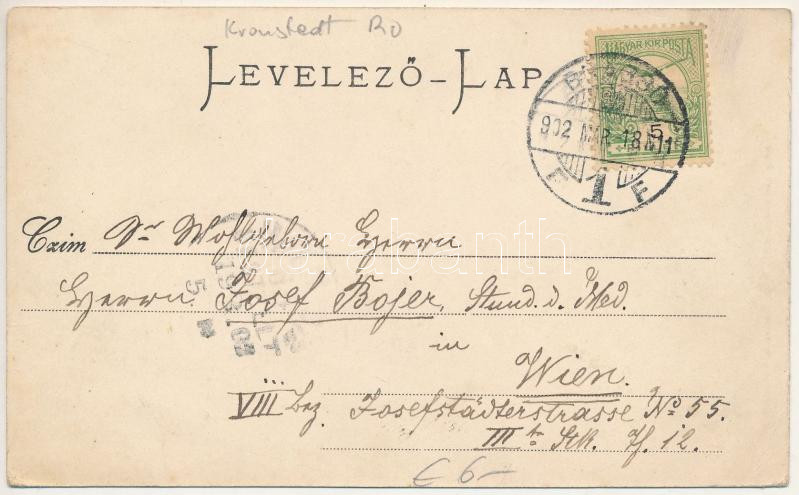 Kronstedt RO
LEVELEZŐ-LAP
MAGYAR KIR. POSTA
BRASSÓ
902 MÁR. 18 N 11
5
F 1 F
Czim Sr Wohlgeborn Herrn
Herrn Josef Bojer, Stund. d. Med.
in
Wien.
VIII Bez. Josefstädterstrasse No 55.
IIIte Stk. Tf. 12.
€ 6-
darabanth